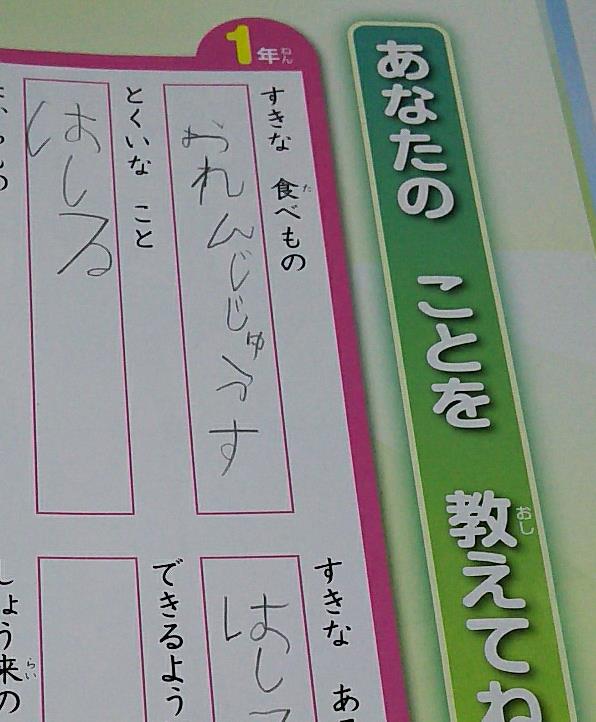 あなたの ことを 教えてね
おし
1年
ねん
すきな 食べもの
た
おれんじじゅうす
とくいな こと
はしる
すきな あ
はし
できるよう
しょう来の
らい